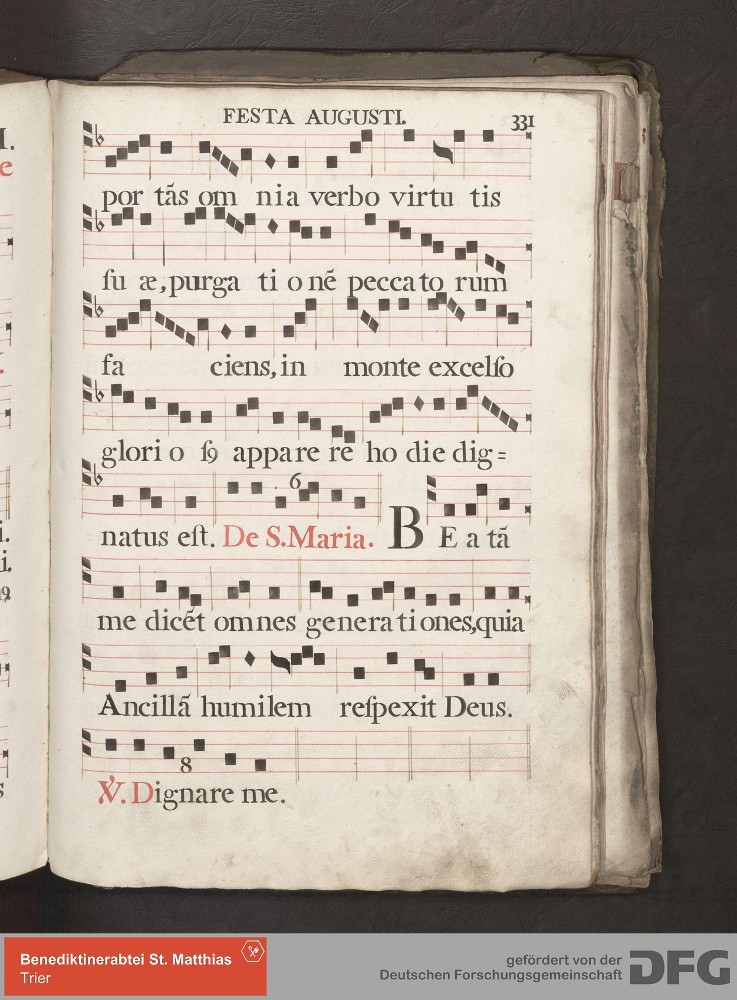 FESTA AUGUSTI. 331
por tãs om nia verbo virtu tis
ſu æ, purga ti onẽ peccato rum
fa ciens, in monte excelſo
glori o ſꝯ appare re ho die dig=
6
natus eſt. De S. Maria. BE a tã
me dicẽt omnes generationes, quia
Ancillã humilem reſpexit Deus.
8
℣. Dignare me.
Benediktinerabtei St. Matthias
Trier
gefördert von der
Deutschen Forschungsgemeinschaft
DFG